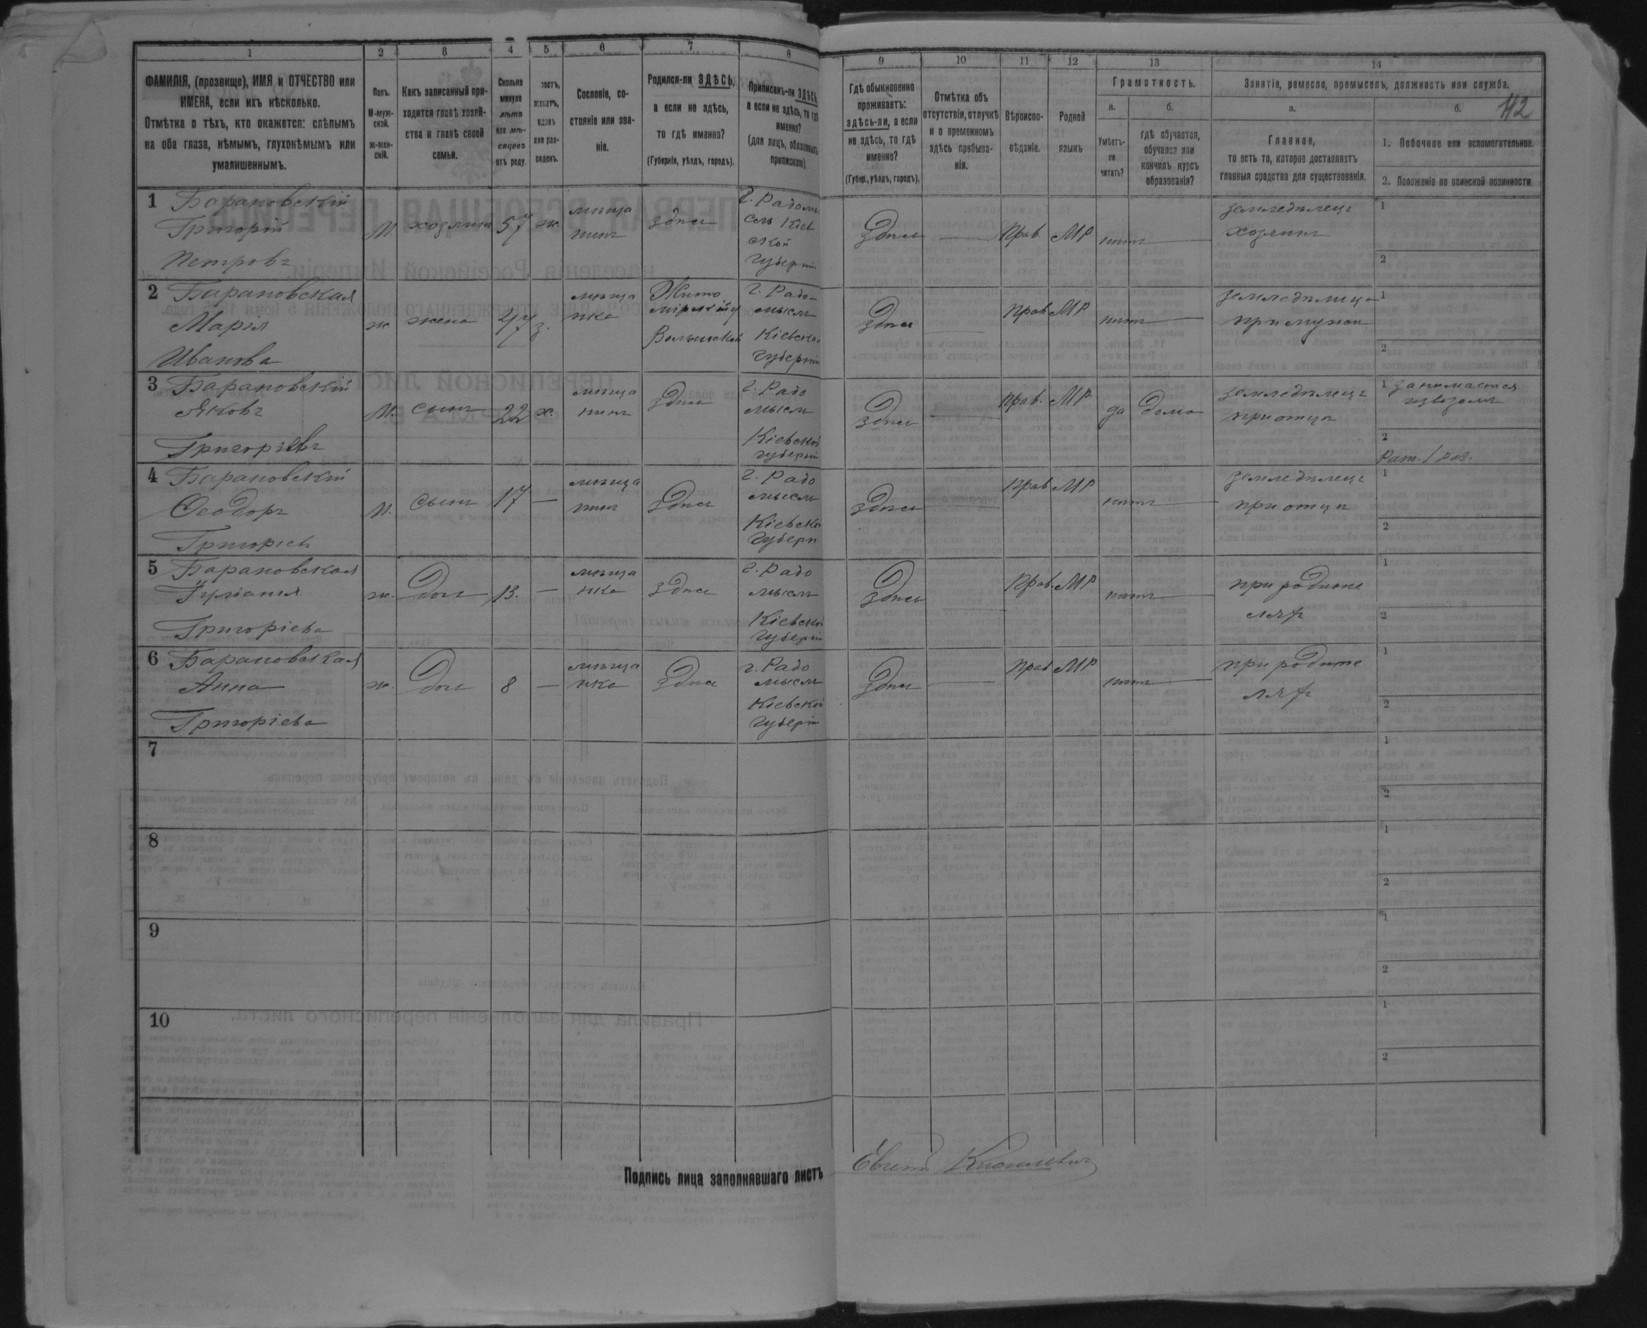 1 2 3 4 5 6 7 8
ФАМИЛІЯ, (прозвище), ИМЯ и ОТЧЕСТВО или
ИМЕНА, если ихъ нѣсколько.
Отмѣтка о тѣхъ, кто окажется: слѣпымъ
на оба глаза, нѣмымъ, глухонѣмымъ или
умалишеннымъ.
Полъ.
М-муж-
ской.
Ж-жен-
скій.
Какъ записанный при-
ходится главѣ хозяй-
ства и главѣ своей
семьи.
Сколько
минуло
лѣтъ
или мѣ-
сяцевъ
отъ роду.
Сословіе, со-
стояніе или зва-
ніе.
Родился-ли ЗДѢСЬ,
а если не здѣсь,
то гдѣ именно?
(Губернія, уѣздъ, городъ).
Приписанъ-ли ЗДѢСЬ
а если не здѣсь, то гдѣ
именно?
(для лицъ, обязанныхъ
припискою).
9 10 11 12 13 14
Гдѣ обыкновенно
проживаетъ:
здѣсь-ли, а если
не здѣсь, то гдѣ
именно?
(Губер., уѣздъ, городъ).
Отмѣтка объ
отсутствіи, отлучкѣ
и о временномъ
здѣсь пребыва-
ніи.
Вѣроиспо-
вѣданіе.
Родной
языкъ
Грамотность.
а. б.
Умѣетъ-
ли
читать?
гдѣ обучается,
обучался или
кончилъ курсъ
образованія?
Занятіе, ремесло, промыселъ, должность или служба.
а. б. 112
Главное,
то есть то, которое доставляетъ
главныя средства для существованія.
1. Побочное или вспомогательное.
2. Положеніе по воинской повинности
1 Барановскій
Григорій
Петровъ
М. хозяинъ 57 ж. мѣща
нинъ
здѣсь
г. Радомы
сль Кіев
ской
губерніи
Здѣсь — Прав МР нѣтъ —
земледѣлецъ
хозяинъ
1
2
2 Барановская
Марія
Иванова
ж жена 47 з. мѣща
нка
Жито
мірскій у
Волынской
г. Радо-
мысль
Кіевской
губерніи
Здѣсь Прав МР нѣтъ —
земледѣлица
при мужѣ
1
2
3 Барановскій
Яковъ
Григорьевъ
М. сынъ 22 х. мѣща
нинъ
здѣсь
г. Радо
мысль
Кіевской
губерніи
Здѣсь — Прав. МР да дома
земледѣлецъ
при отцѣ
1 занимается
извозомъ
2
Рат. 1 раз.
4 Барановскій
Ѳеодоръ
Григоріевъ
М. сынъ 17 — мѣща
нинъ
Здѣсь
г. Радо
мысль
Кіевской
губерн
здѣсь — Прав МР нѣтъ —
земледѣлецъ
при отцѣ
1
2
5 Барановская
Григоріева
ж. доч 13. — мѣща
нка
здѣсь
г. Радо
мысль
Кіевской
губерніи
Здѣсь — Прав МР нѣтъ —
при родите
ляхъ
1
2
6 Барановская
Анна
Григоріева
ж. доч 8 — мѣща
нка
Здѣсь
г. Радо
мысль
Кіевской
губерніи
Здѣсь — Прав МР нѣтъ —
при родите
ляхъ
1
2
7 1
2
8 1
2
9 1
2
10 1
2
Подпись лица заполнявшаго листъ